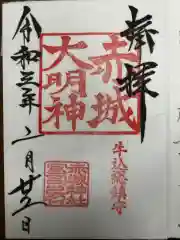 奉拝
赤城
大明神
牛込総鎮守
令和三年二月廿三日